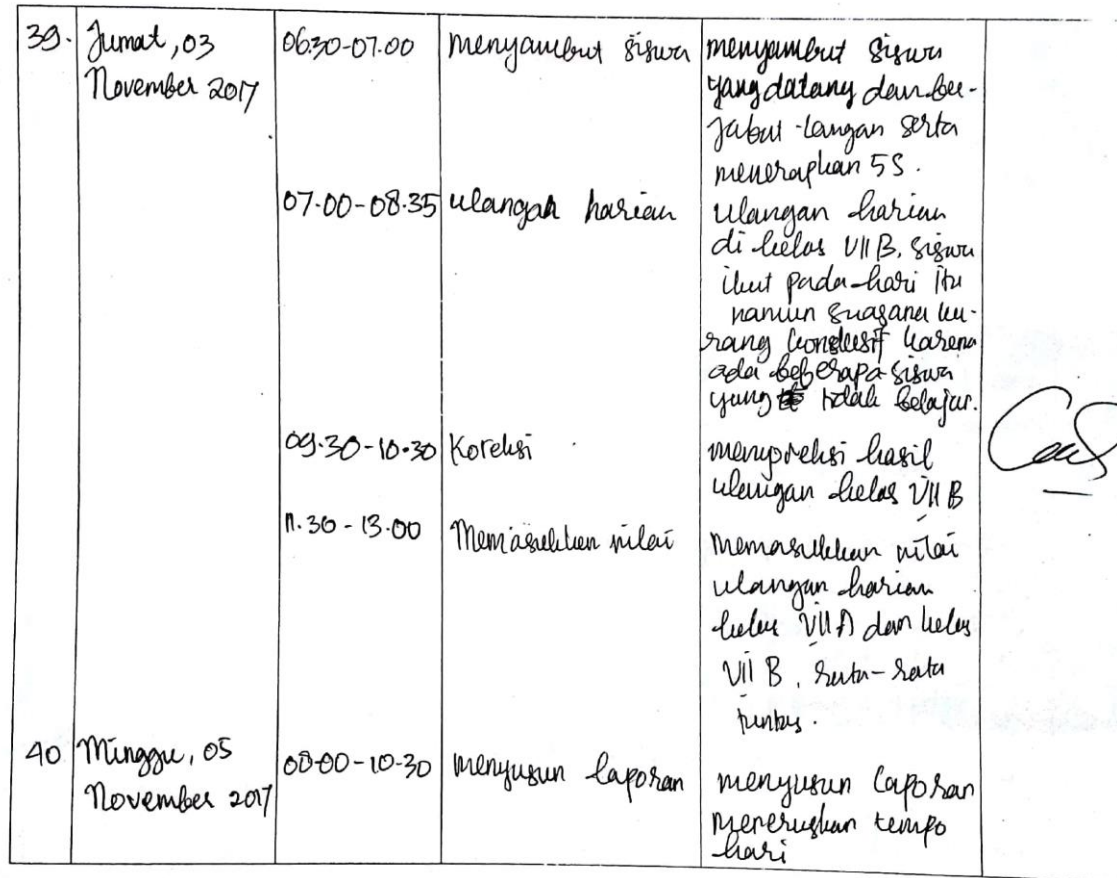 39. Jumat, 03 06.30-07.00 menyambut siswa menyambut siswa
November 2017 yang datang dan ber-
jabat tangan serta
menerapkan 5S.
07.00-08.35 ulangan harian ulangan harian
di kelas VII B. siswa
ikut pada hari itu
namun suasana ku-
rang kondusif karena
ada beberapa siswa
yang tidak belajar.
09.30-10.30 Koreksi mengoreksi hasil
ulangan kelas VII B
11.30-13.00 Memasukkan nilai memasukkan nilai
ulangan harian
kelas VII A dan kelas
VII B. rata-rata
tuntas.
40 Minggu, 05 08.00-10.30 menyusun laporan menyusun laporan
November 2017 meneruskan tempo
hari